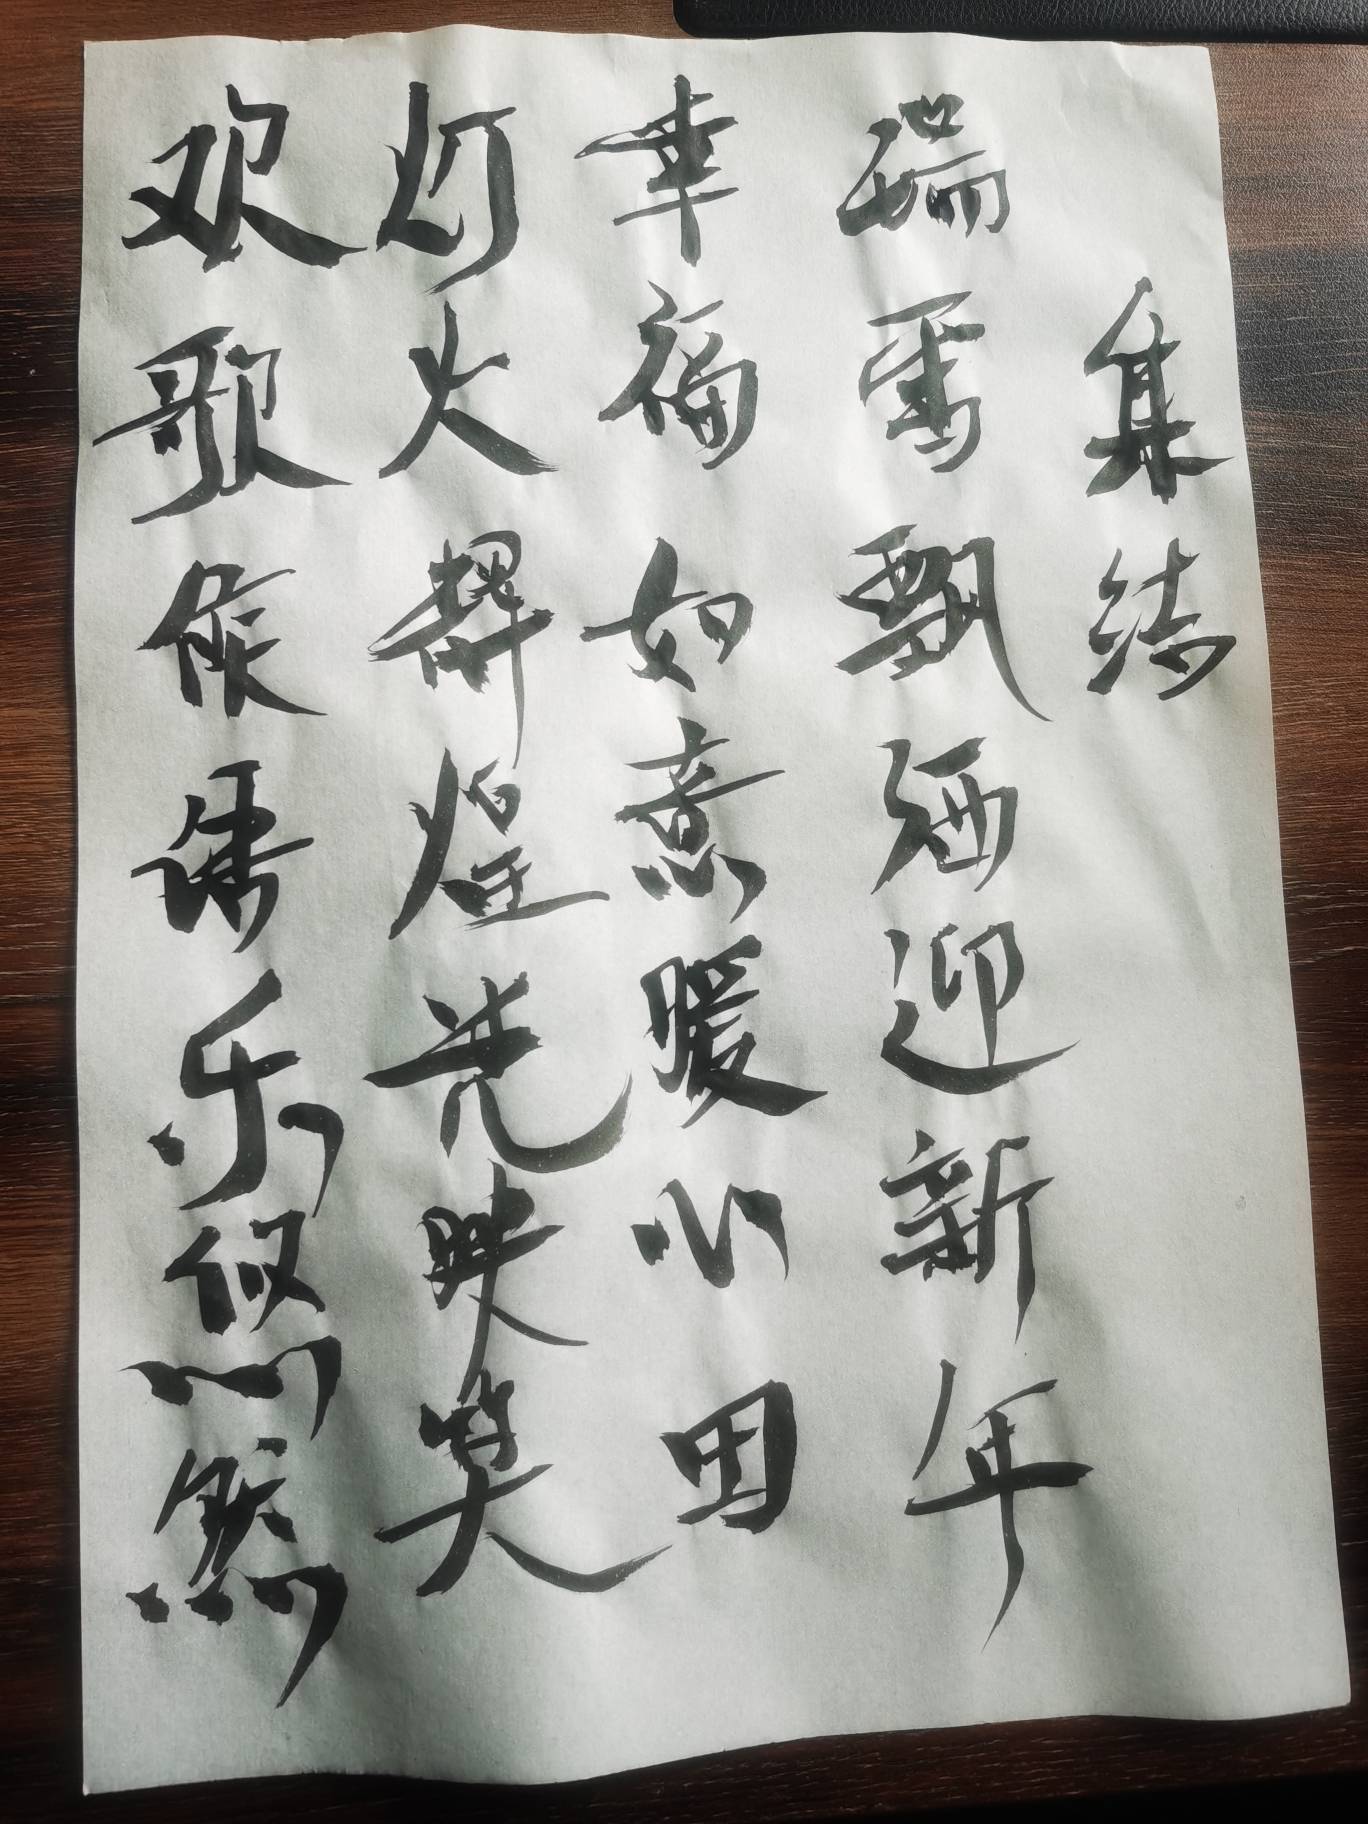 集结
瑞雪飘洒迎新年
幸福如意暖心田
灯火辉煌光映昊
欢歌候语乐悠然